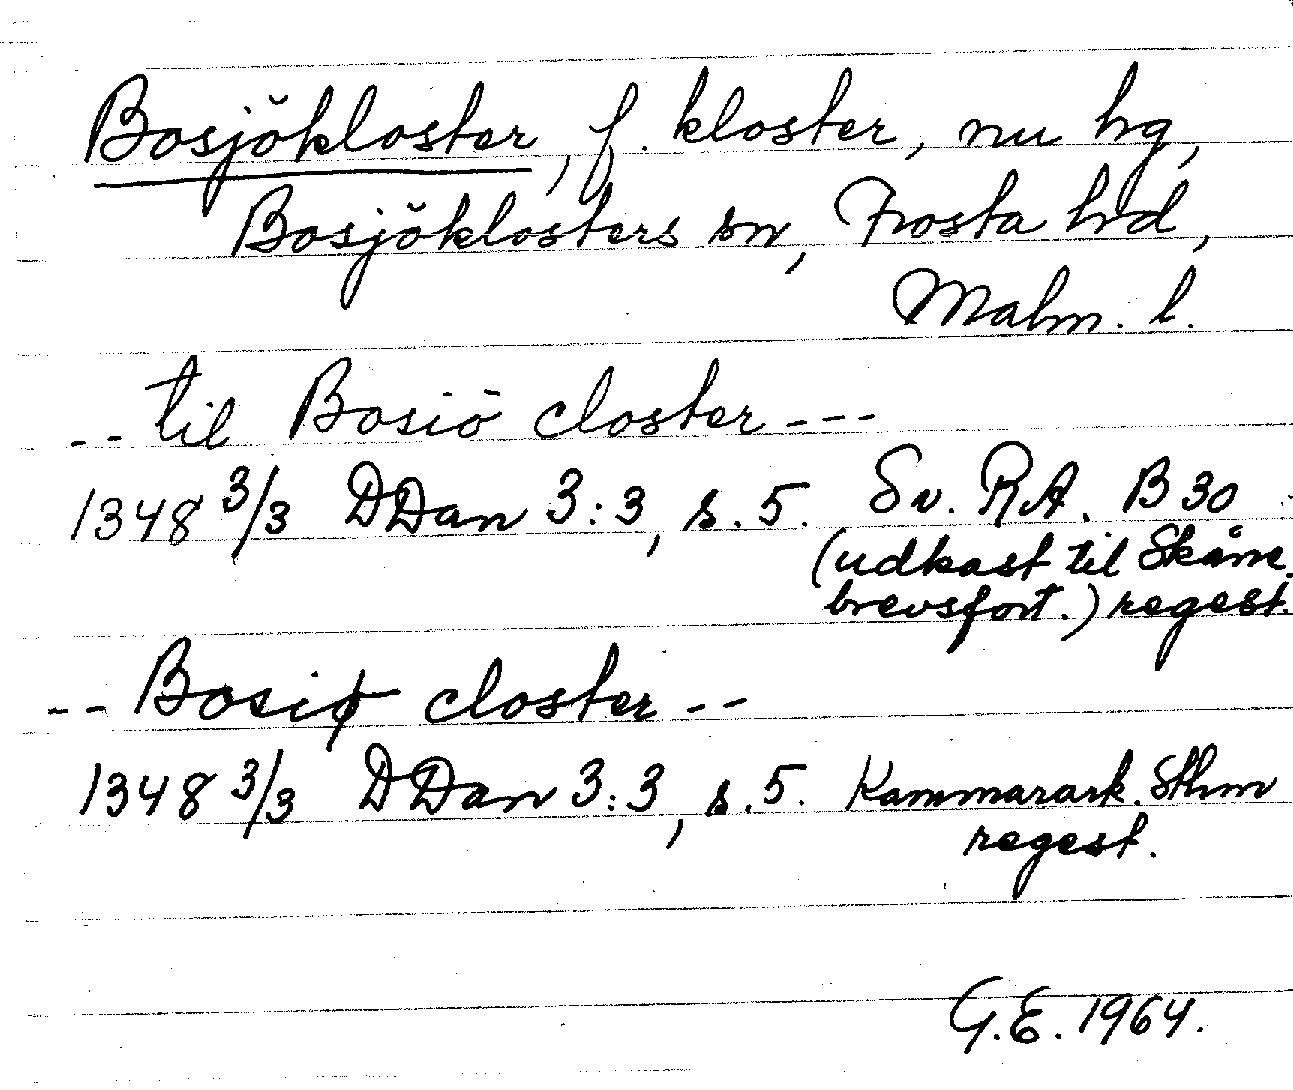 Bosjökloster, f. kloster, nu hg,
Bosjöklosters sn, Frosta hd,
Malm. l.
-- til Bosiö closter ---
1348 3/3 DDan 3:3, s. 5. Sv. RA. B 30
(udkast til Skåne
brevsfort.) regest.
-- Bosiø closter --
1348 3/3 DDan 3:3, s. 5. Kammarark. Sthm
regest.
G.E. 1964.